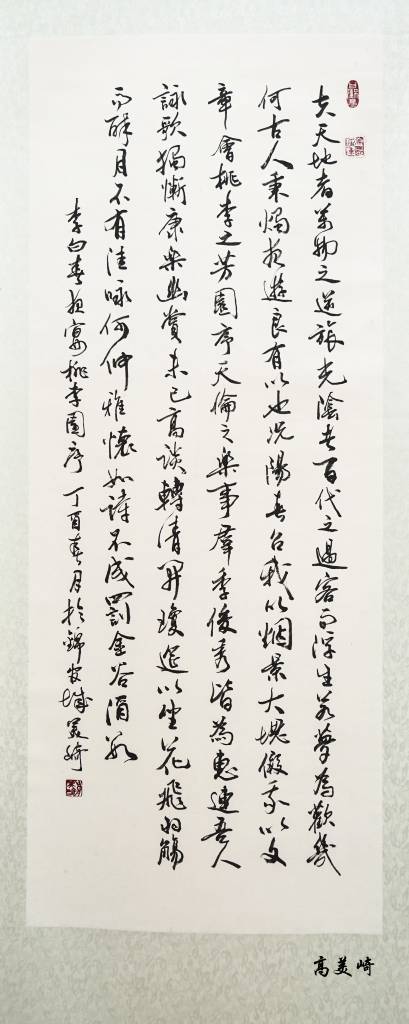 夫天地者萬物之逆旅光陰者百代之過客而浮生若夢為歡幾
何古人秉燭夜遊良有以也況陽春召我以烟景大塊假我以文
章會桃李之芳園序天倫之樂事群季俊秀皆為惠連吾人
詠歌獨慚康樂幽賞未已高談轉清開瓊筵以坐花飛羽觴
而醉月不有佳咏何伸雅懷如詩不成罰金谷酒數
李白春夜宴桃李園序丁酉春月於錦官城美崎
高美崎